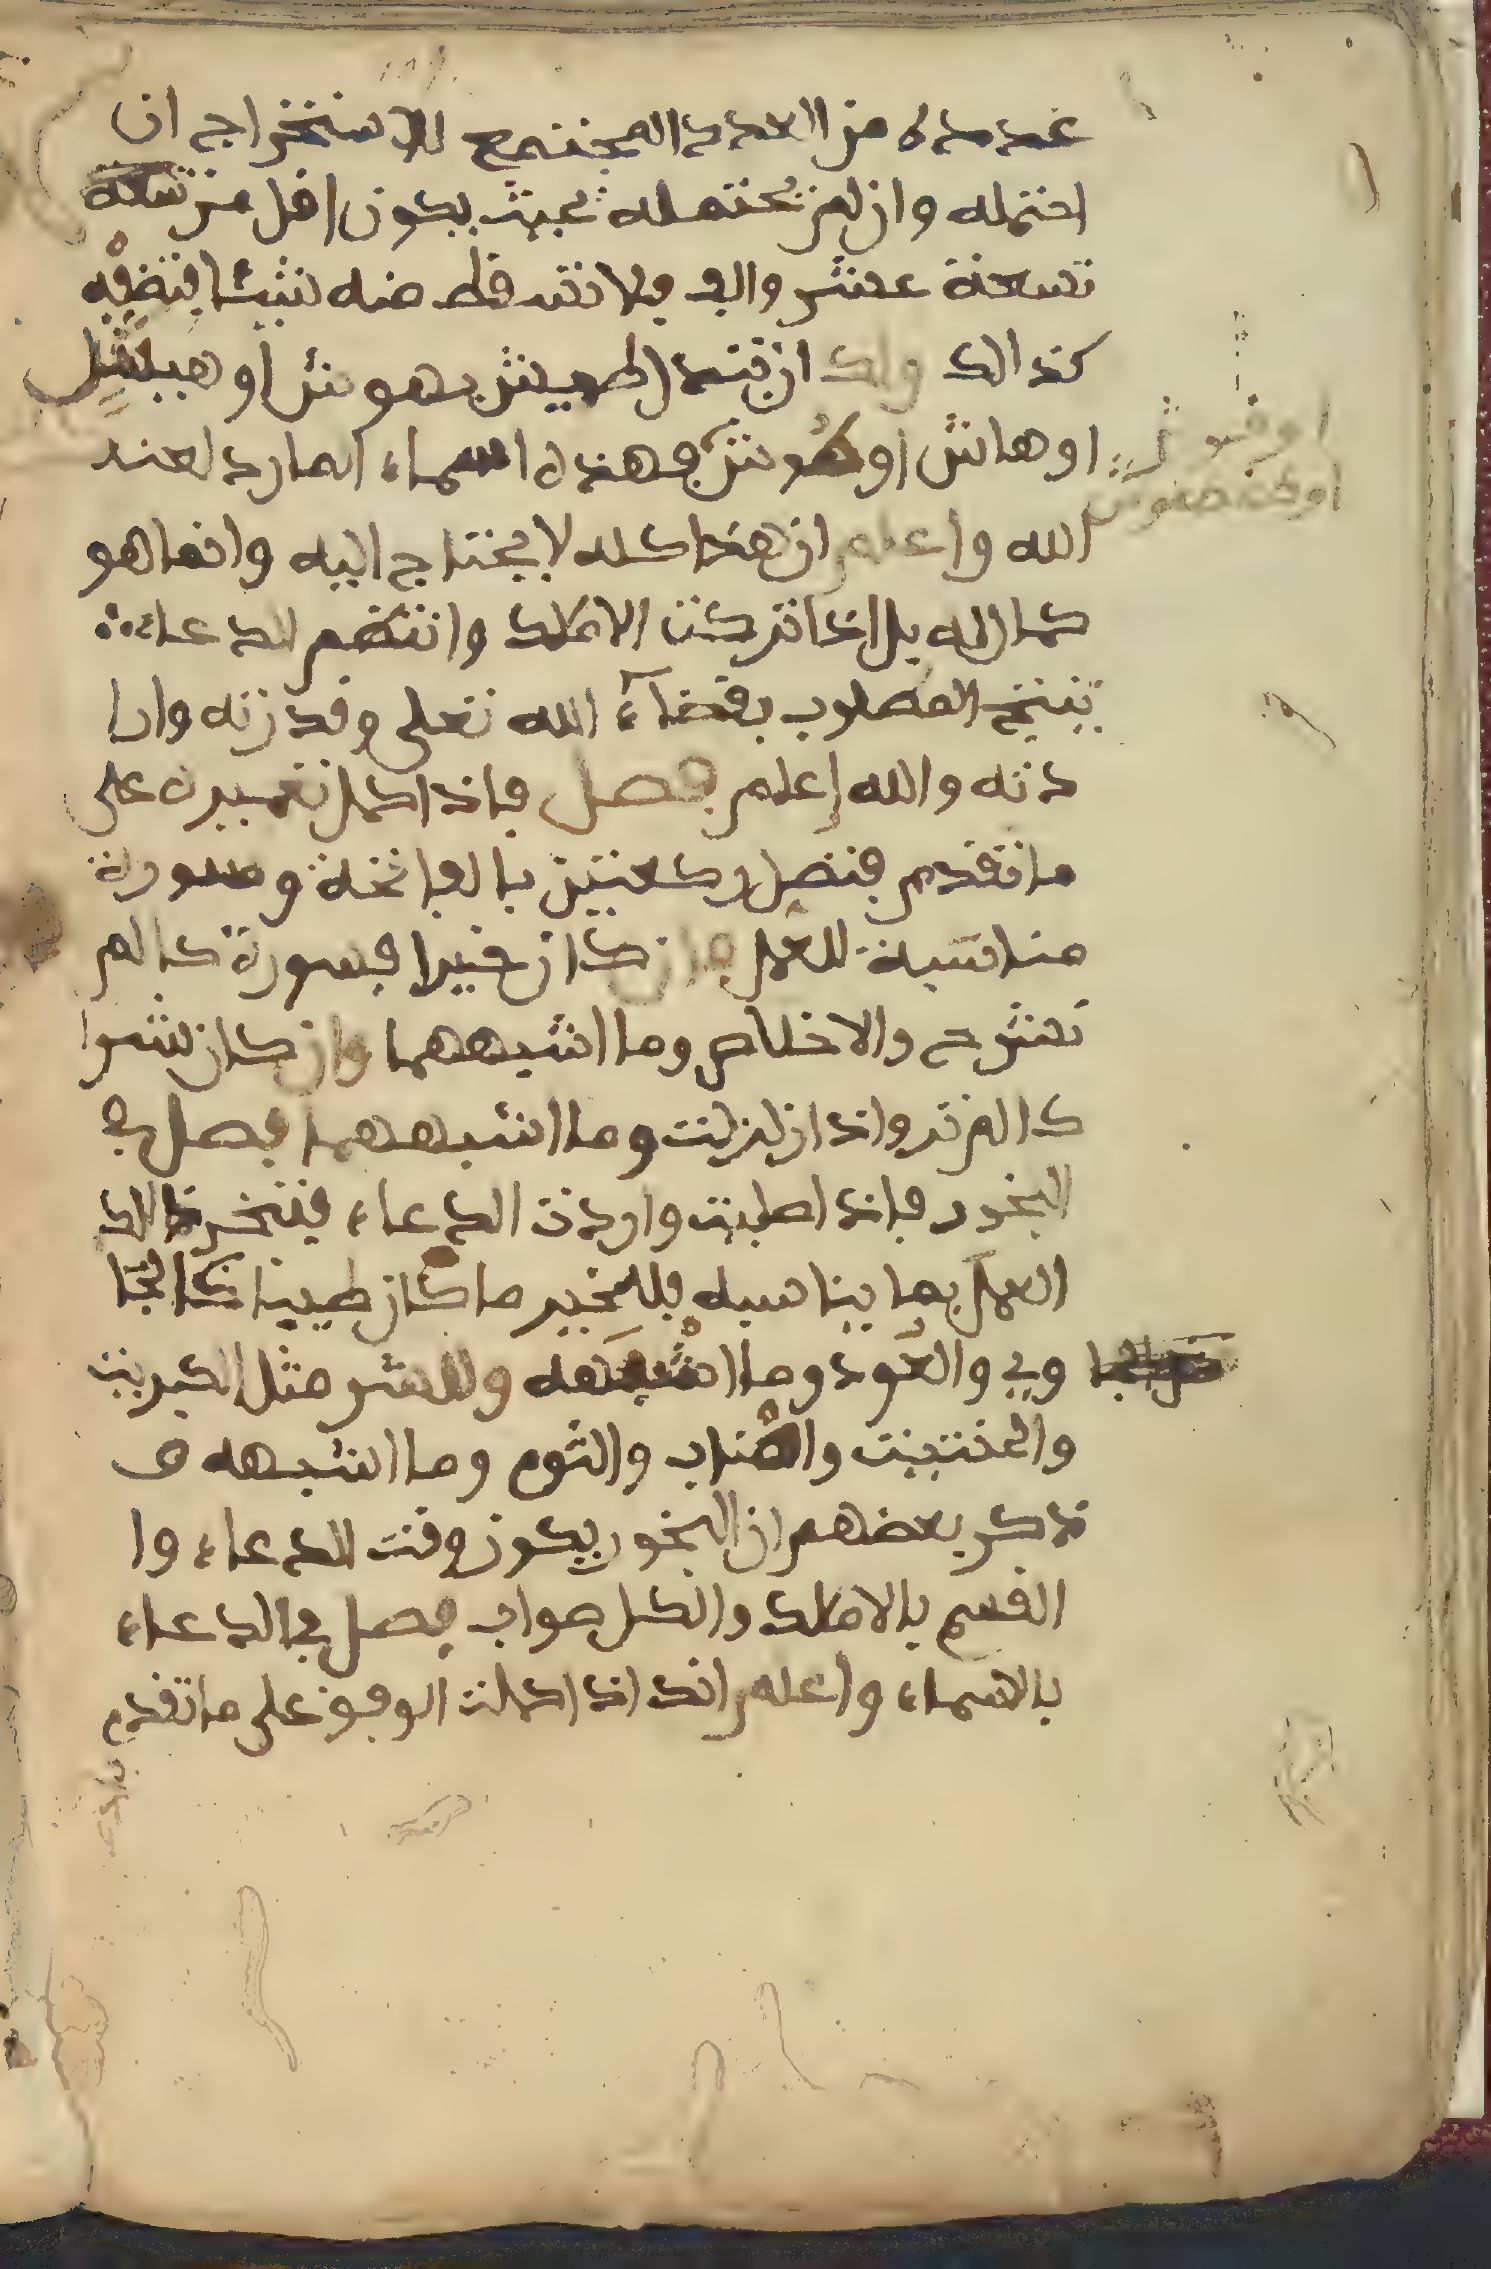 عدده من العدد المجتمع للاستخراج ان
احتمله وان لم يحتمله بحيث يكون اقل من تسعة
تسعة عشر والف فلا تسقط منه شيئا فتضيفه
كذالك ولك ان تبدل طيش بهوش او هيلش
او هاش او كهوش فهذه اسماء المارد لعند
الله واعلم ان هذا كله لا يحتاج اليه وانما هو
كمال له بل اذا تركت الاملاك وانتظم الدعاء
ينتج المطلوب بقضاء الله تعلى وقدرته وارا
دته والله اعلم فصل فاذا كمل تعميره على
ما تقدم فتصل ركعتين بالفاتحة وسورة
مناسبة للعمل فان كان خيرا فسورة كالم
نشرح والاخلاص وما اشبههما وان كان شرا
كالم تر واذا زلزلت وما اشبههما فصل في
البخور فاذا صليت واردت الدعاء فتبخر ذالك
العمل بما يناسبه فللخير ما كان طيبا كالجا
وي والعود وما اشبهه وللشر مثل الكبريت
والحنتيت والصناب والثوم وما اشبهه و
ذكر بعضهم ان البخور يكون وقت الدعاء وا
القسم بالاملاك والكل صواب فصل في الدعاء
بالاسماء واعلم انك اذا كملت الوفق على ما تقدم